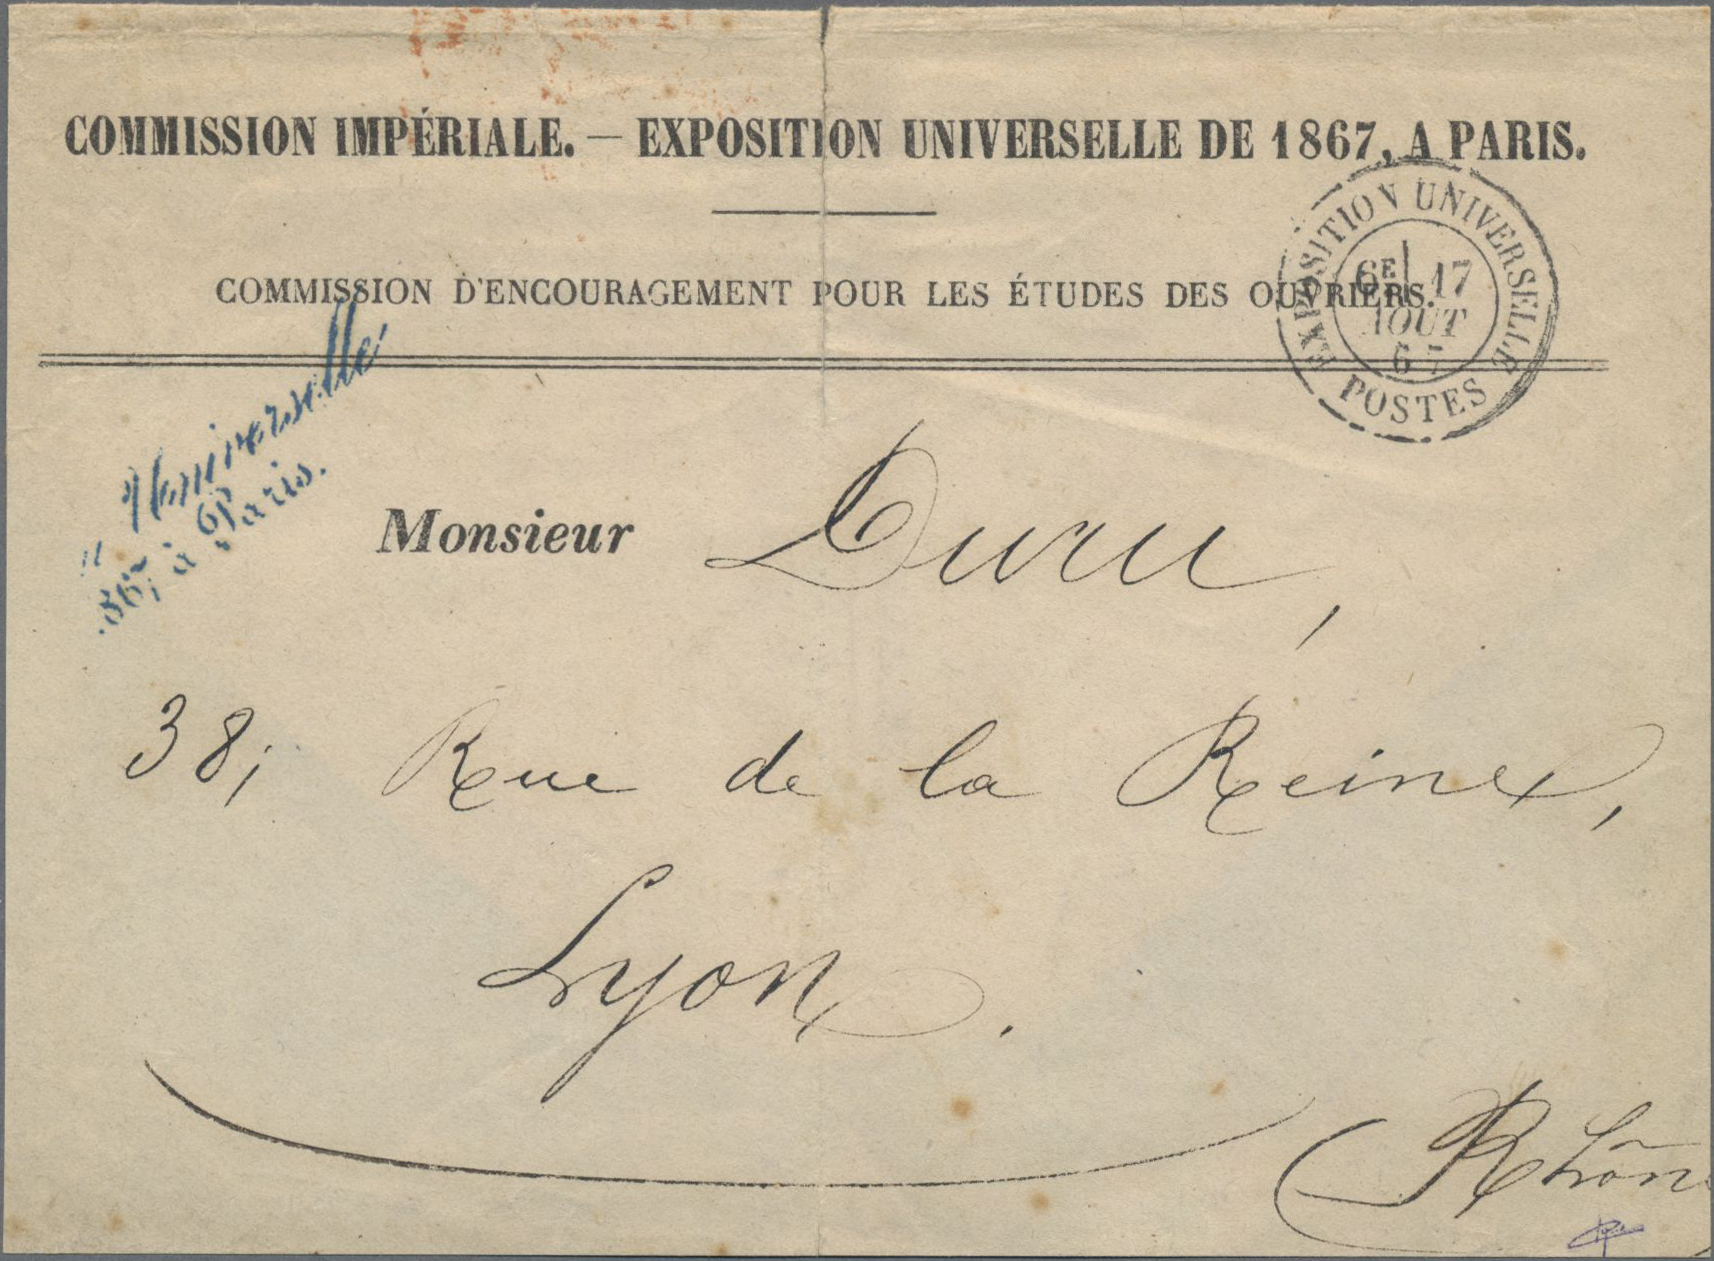 COMMISSION IMPÉRIALE. — EXPOSITION UNIVERSELLE DE 1867, A PARIS.
COMMISSION D'ENCOURAGEMENT POUR LES ÉTUDES DES OUVRIERS.
EXPOSITION UNIVERSELLE
6E 17
AOUT
67
POSTES
Universelle
867, à Paris.
Monsieur Duru,
38, Rue de la Reine,
Lyon.
(Rhôn